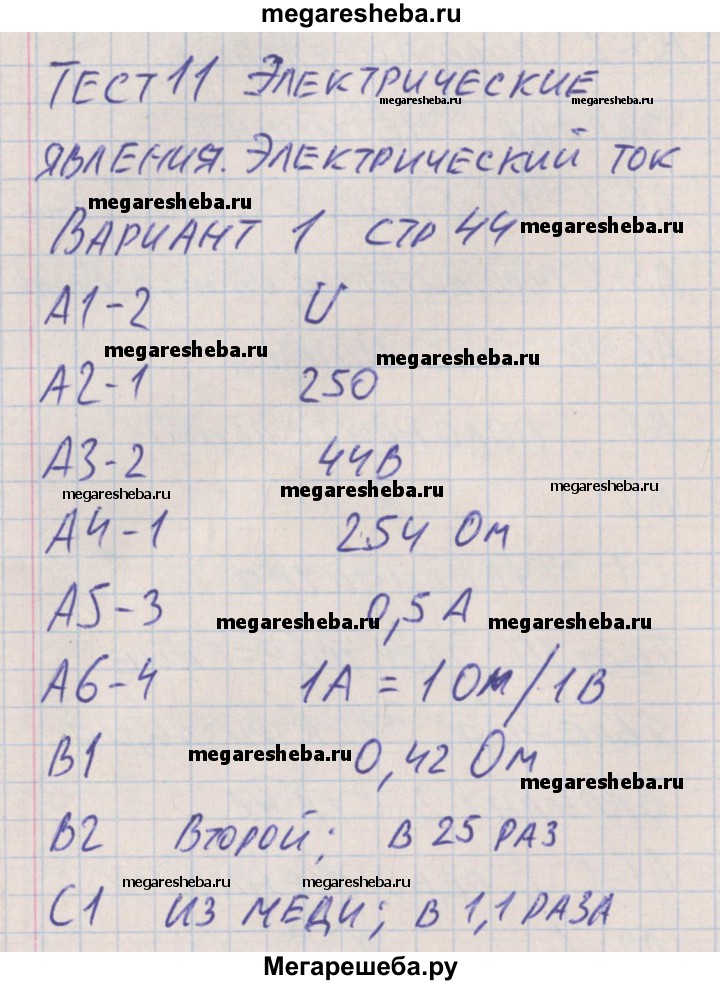 megaresheba.ru
ТЕСТ 11 ЭЛЕКТРИЧЕСКИЕ
megaresheba.ru megaresheba.ru
ЯВЛЕНИЯ. ЭЛЕКТРИЧЕСКИЙ ТОК
megaresheba.ru
ВАРИАНТ 1 СТР 44
megaresheba.ru
А1-2 U
megaresheba.ru megaresheba.ru
А2-1 250
А3-2 44В
megaresheba.ru megaresheba.ru megaresheba.ru
А4-1 254 Ом
А5-3 0,5 А
megaresheba.ru megaresheba.ru
А6-4 1А = 1 Ом/1В
В1 0,42 Ом
megaresheba.ru megaresheba.ru
В2 ВТОРОЙ; В 25 РАЗ
megaresheba.ru megaresheba.ru
С1 ИЗ МЕДИ; В 1,1 РАЗА
Мегарешеба.ру